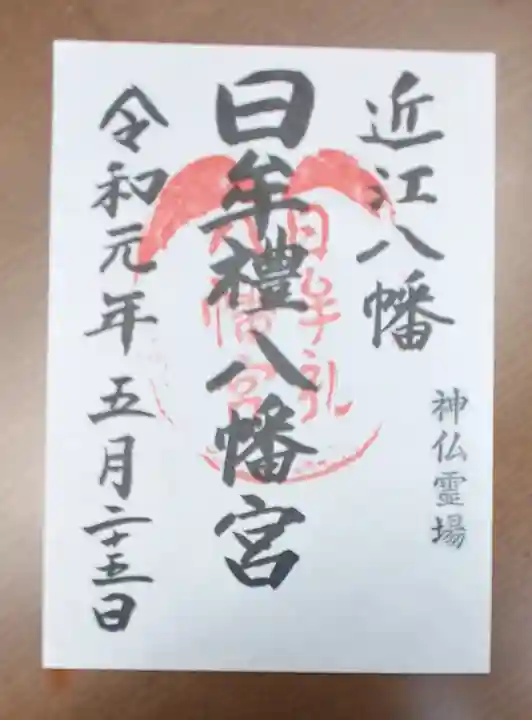 近江八幡
神仏霊場
日牟禮八幡宮
日牟礼
八幡宮
令和元年五月二十五日